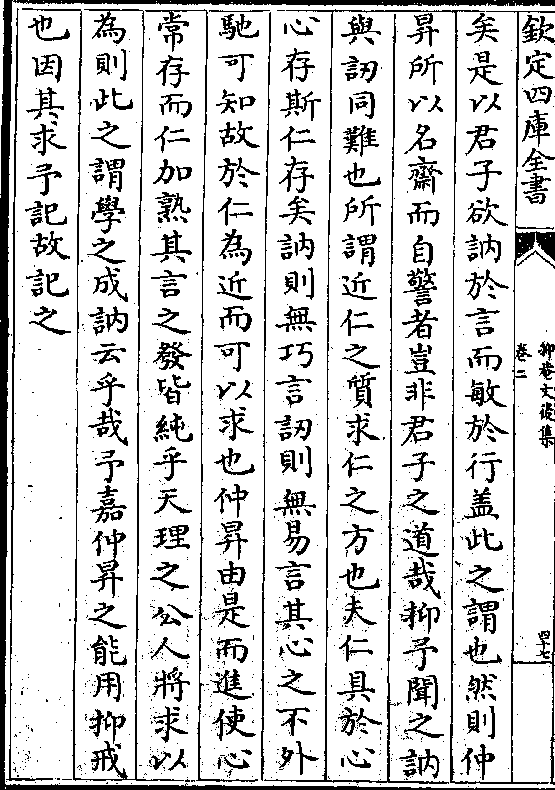 欽定四庫全書
抑菴文後集
卷二
四十七
矣是以君子欲訥於言而敏於行盖此之謂也然則仲
昇所以名齋而自警者豈非君子之道哉抑予聞之訥
與訒同難也所謂近仁之質求仁之方也夫仁具於心
心存斯仁存矣訥則無巧言訒則無易言其心之不外
馳可知故於仁為近而可以求也仲昇由是而進使心
常存而仁加熟其言之發皆純乎天理之公人將求以
為則此之謂學之成訥云乎哉予嘉仲昇之能用抑戒
也因其求予記故記之